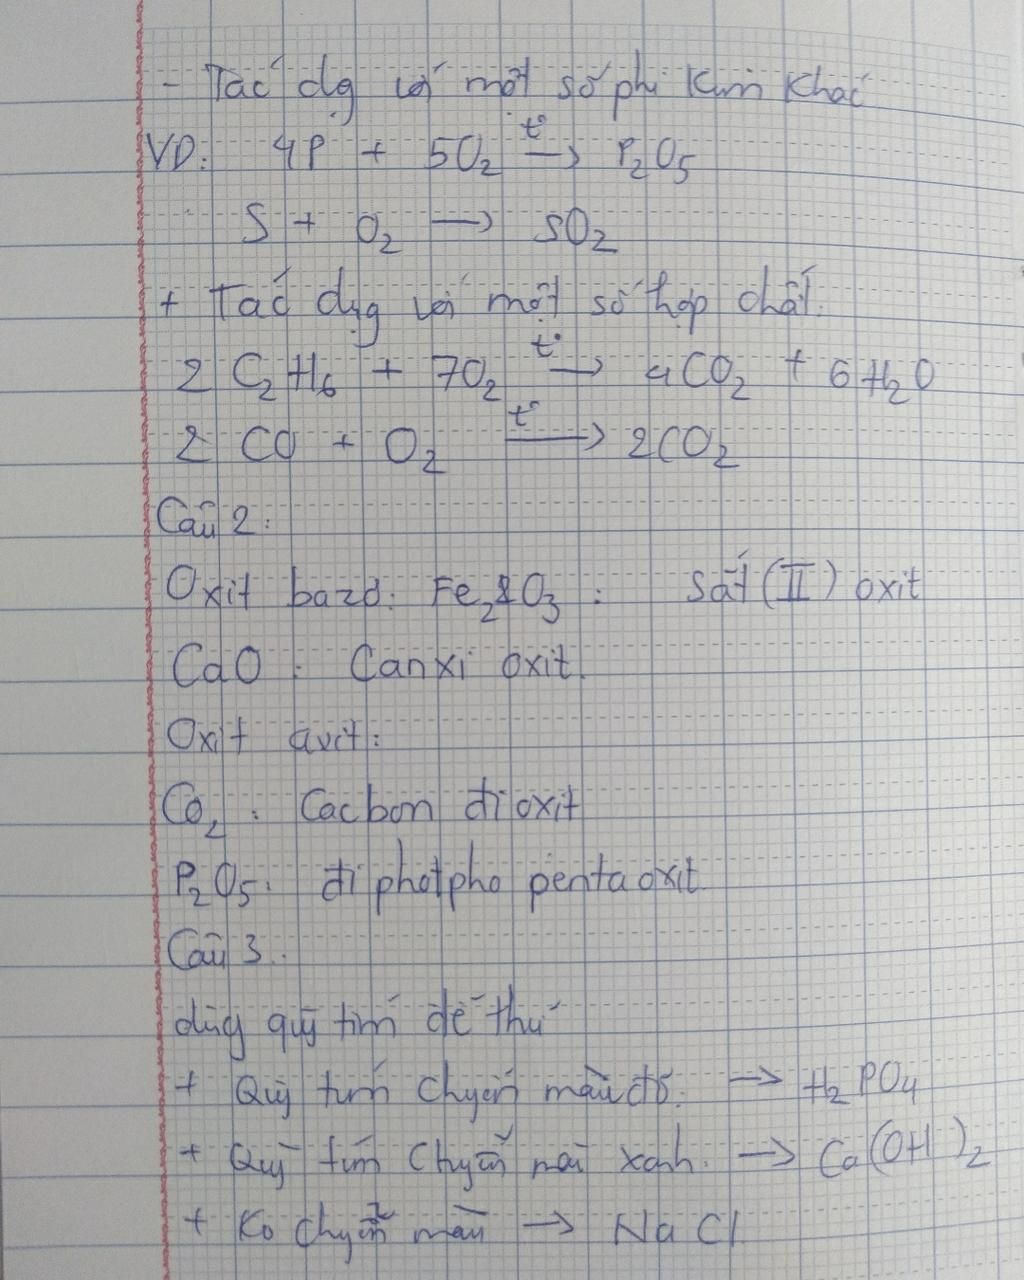 - Tác dg với một số phi kim khác
VD: 4P + 5O₂ t° → P₂O₅
S + O₂ → SO₂
+ Tác dụg với một số hợp chất.
2 C₂H₆ + 7O₂ t° → 4CO₂ + 6H₂O
2 CO + O₂ t° → 2CO₂
Câu 2:
Oxit bazơ: Fe₂O₃ : Sắt (II) oxit
CaO : Canxi oxit.
Oxit axit:
CO₂ : Cacbon đi oxit
P₂O₅: đi photpho penta oxit
Câu 3:
dùg quỳ tím để thử
+ Quỳ tím chyển màu đỏ. → H₂PO₄
+ Quỳ tím chyển màu xanh. → Ca(OH)₂
+ Ko chyển màu → NaCl